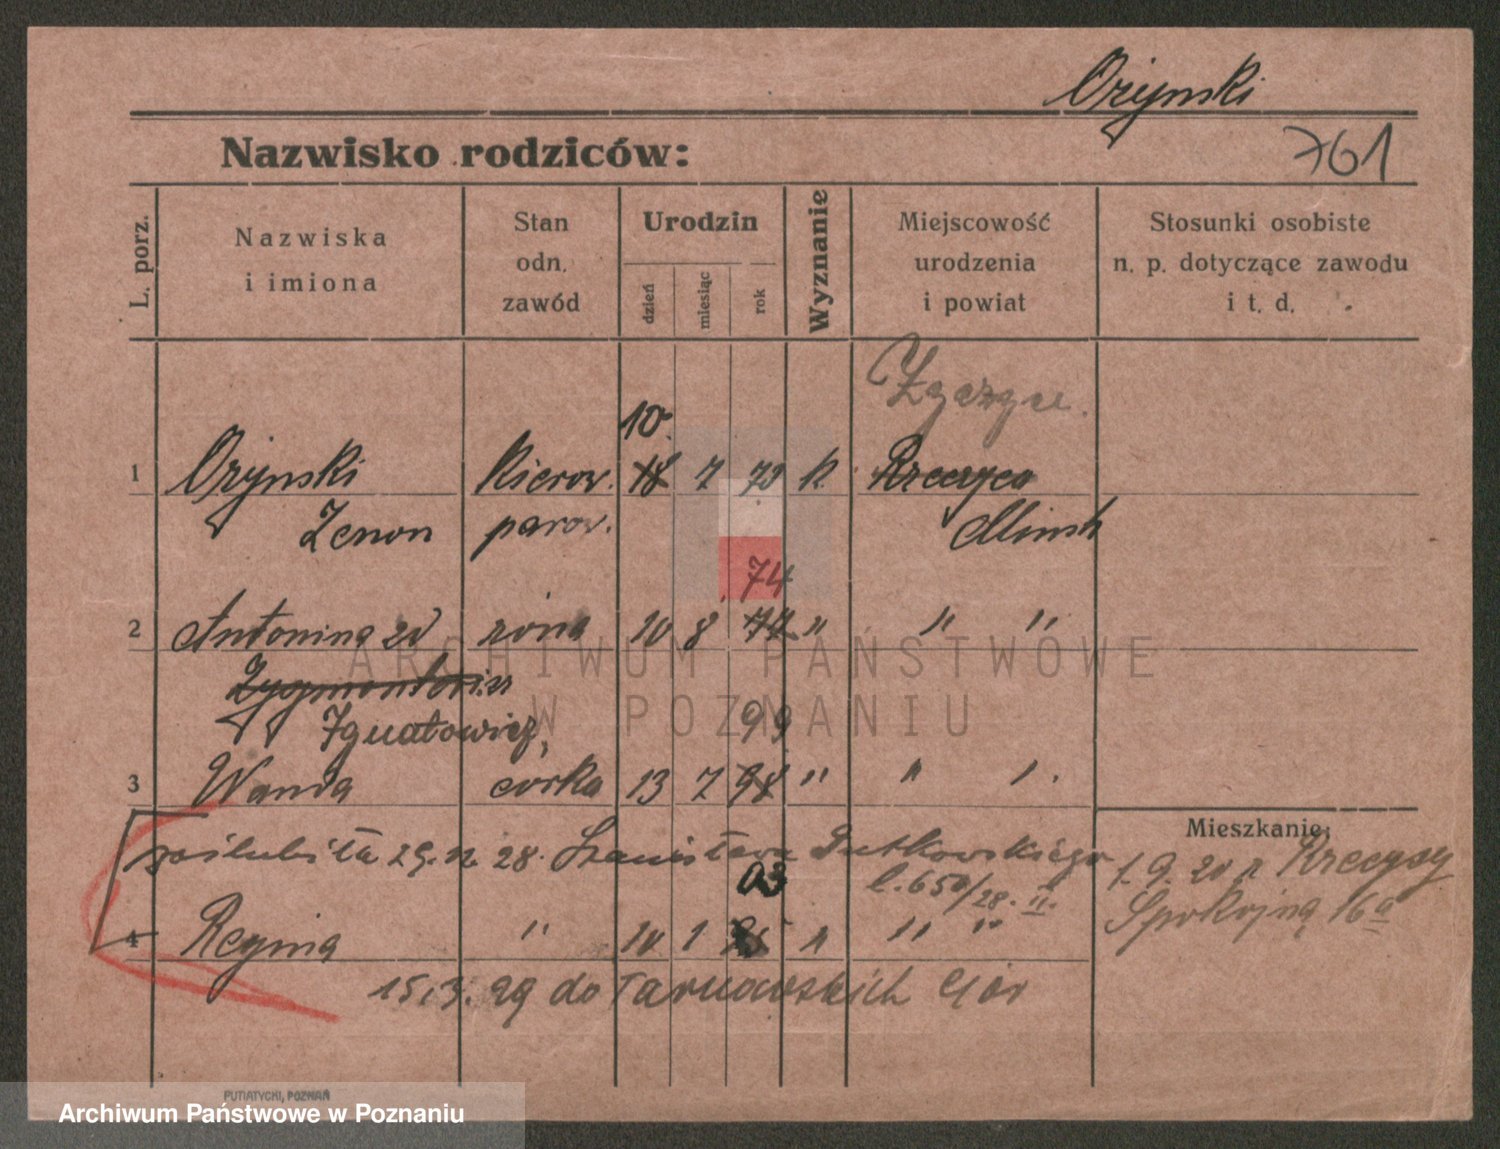 Ożynski
761
Nazwisko rodziców:
L. porz.
Nazwiska
i imiona
Stan
odn.
zawód
Urodzin
dzień
miesiąc
rok
Wyznanie
Miejscowość
urodzenia
i powiat
Stosunki osobiste
n. p. dotyczące zawodu
i t. d.
10.
1 Ożynski Kierow. 18 7 73 k. Rzeczyca
Zenon parow. Minsk
74
2 Antonina zd żona 10 8 77 " " "
Ignatowicz,
99
3 Wanda córka 13 7 98 " " "
Mieszkanie:
zaślubiła 29.12 28. Stanisława Rutkowskiego
l. 650/28. II.
1.9.20 z Rzeczycy
Spokojna 16a
03
4 Regina " 10 1 " " "
15.3.29 do Tarnowskich Gór
PUTIATYCKI, POZNAŃ
ARCHIWUM PAŃSTWOWE
W POZNANIU
Archiwum Państwowe w Poznaniu